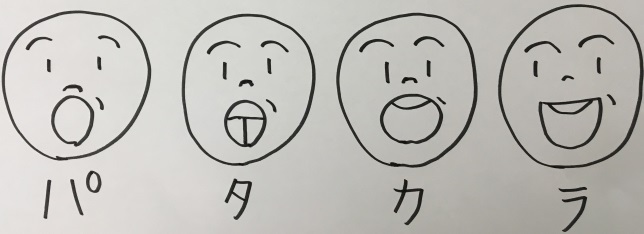 パ タ カ ラ